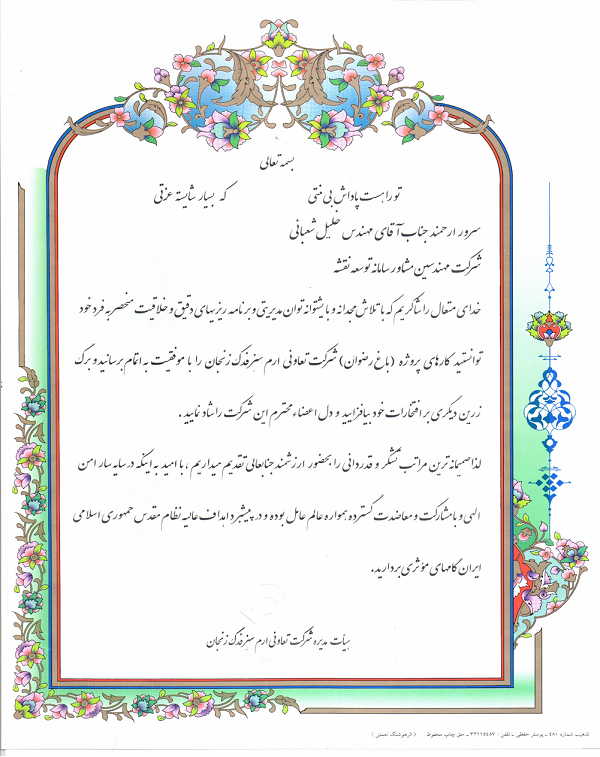 بسمه تعالی
تو را هست پاداش بی منتی که بسیار شایسته عزتی
سرور ارجمند جناب آقای مهندس خلیل شعبانی
شرکت مهندسین مشاور سامانه توسعه نقشه
خدای متعال را شاکریم که با تلاش مجدانه و با پشتوانه توان مدیریتی و برنامه ریزیهای دقیق و خلاقیت منحصر به فرد خود
توانستید کارهای پروژه (باغ رضوان) شرکت تعاونی ارم سبز فدک زنجان را با موفقیت به اتمام برسانید و برگ
زرین دیگری بر افتخارات خود بیافزایید و دل اعضاء محترم این شرکت را شاد نمایید .
لذا صمیمانه ترین مراتب تشکر و قدردانی را بحضور ارزشمند جنابعالی تقدیم میداریم ، با امید به اینکه در سایه سار امن
الهی و با مشارکت و معاضدت گسترده همواره عالم عامل بوده و در پیشبرد اهداف عالیه نظام مقدس جمهوری اسلامی
ایران گامهای مؤثری بردارید.
هیأت مدیره شرکت تعاونی ارم سبز فدک زنجان
تذهیب شماره ۴۸۰ ـ پوستر حافظی ـ تلفن : ۳۳۱۱۵۴۵۷ ـ حق چاپ محفوظ